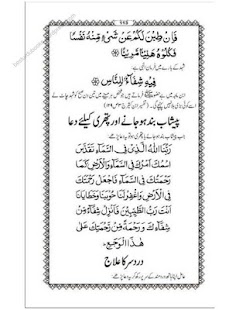 فَاِنْ طِبْنَ لَكُمْ عَنْ شَىْءٍ مِّنْهُ نَفْسًا
فَكُلُوْهُ هَنِيْٓئًا مَّرِيْٓئًا
فِيْهِ شِفَآءٌ لِّلنَّاسِ
پیشاب بند ہو جانے اور پتھری کیلئے دعا
رَبُّنَا اللّٰهُ الَّذِىْ فِى السَّمَآءِ تَقَدَّسَ
اسْمُكَ اَمْرُكَ فِى السَّمَآءِ وَالْاَرْضِ كَمَا
رَحْمَتُكَ فِى السَّمَآءِ فَاجْعَلْ رَحْمَتَكَ
فِى الْاَرْضِ وَاغْفِرْ لَنَا حُوْبَنَا وَخَطَايَانَا
اَنْتَ رَبُّ الطَّيِّبِيْنَ فَاَنْزِلْ شِفَآءً مِّنْ
شِفَآئِكَ وَرَحْمَةً مِّنْ رَّحْمَتِكَ عَلٰى
هٰذَا الْوَجَعِ۔
درد سر کا علاج